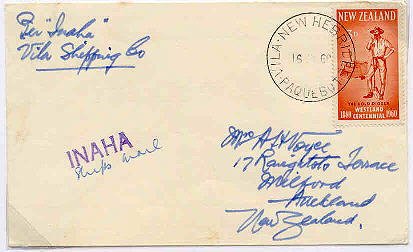 Per "Inaha"
Vila Shipping Co
VILA · NEW HEBRIDES
16
60
PAQUEBOT
NEW ZEALAND
THE GOLD DIGGER
WESTLAND
1860 CENTENNIAL 1960
INAHA
Ships mail
Mrs A H Voyce
17 Rangitoto Terrace
Milford
Auckland
New Zealand.